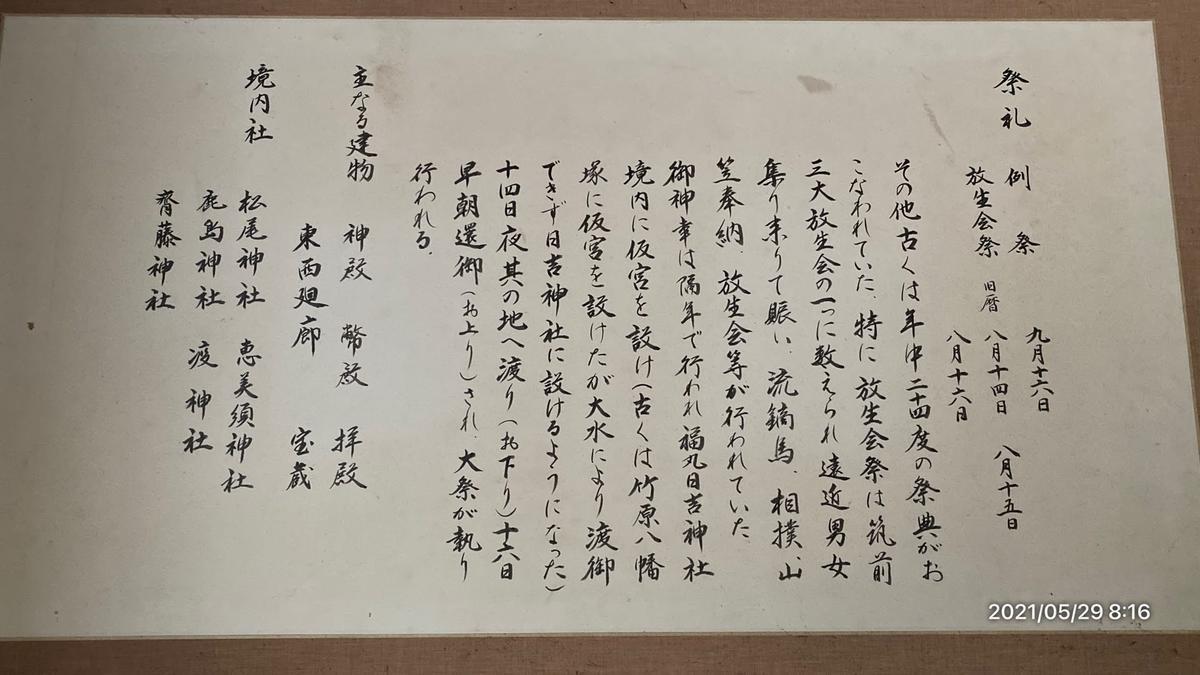 祭礼
例祭 九月十六日
放生会祭 旧暦 八月十四日 八月十五日
八月十六日
その他古くは年中二十四度の祭典がお
こなわれていた、特に放生会祭は筑前
三大放生会の一つに数えられ遠近男女
集り来りて賑い、流鏑馬、相撲、山
笠奉納、放生会等が行われていた
御神幸は隔年で行われ福丸日吉神社
境内に仮宮を設け(古くは竹原八幡
塚に仮宮を設けたが大水により渡御
できず日吉神社に設けるようになった)
十四日夜其の地へ渡り(お下り)十六日
早朝還御(お上り)され、大祭が執り
行われる。
主なる建物 神殿 幣殿 拝殿
東西廻廊 宝蔵
境内社 松尾神社 恵美須神社
鹿島神社 渡神社
齊藤神社
2021/05/29 8:16